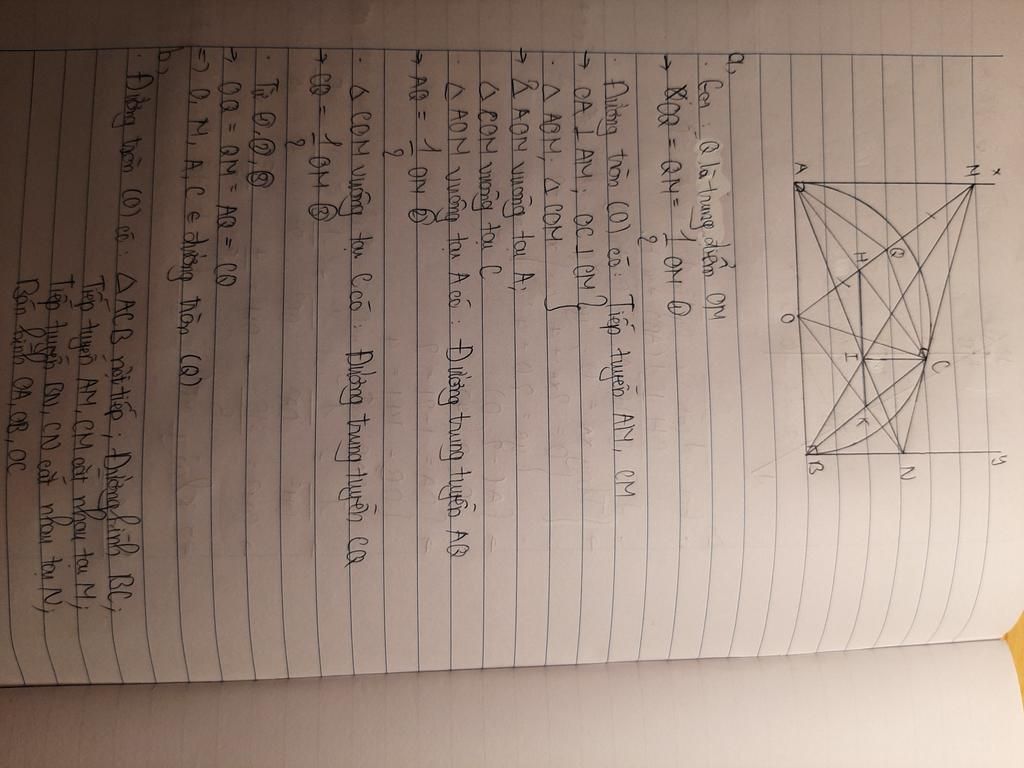 x
y
M
N
C
Q
H
I
K
A
O
B
a,
· Gọi: Q là trung điểm OM
→ OQ = QM = 1/2 OM ①
· Đường tròn (O) có: Tiếp tuyến AM, CM
→ OA ⊥ AM; OC ⊥ CM }
· △ AOM; △ COM }
→ △ AOM vuông tại A;
△ COM vuông tại C
· △ AOM vuông tại A có: Đường trung tuyến AQ
→ AQ = 1/2 OM ②
· △ COM vuông tại C có: Đường trung tuyến CQ
→ CQ = 1/2 OM ③
· Từ ①, ②, ③
→ OQ = QM = AQ = CQ
=) O, M, A, C ∈ đường tròn (Q)
b,
· Đường tròn (O) có: △ ACB nội tiếp; Đường kính BC;
Tiếp tuyến AM, CM cắt nhau tại M;
Tiếp tuyến BN, CN cắt nhau tại N;
Bán kính OA, OB, OC